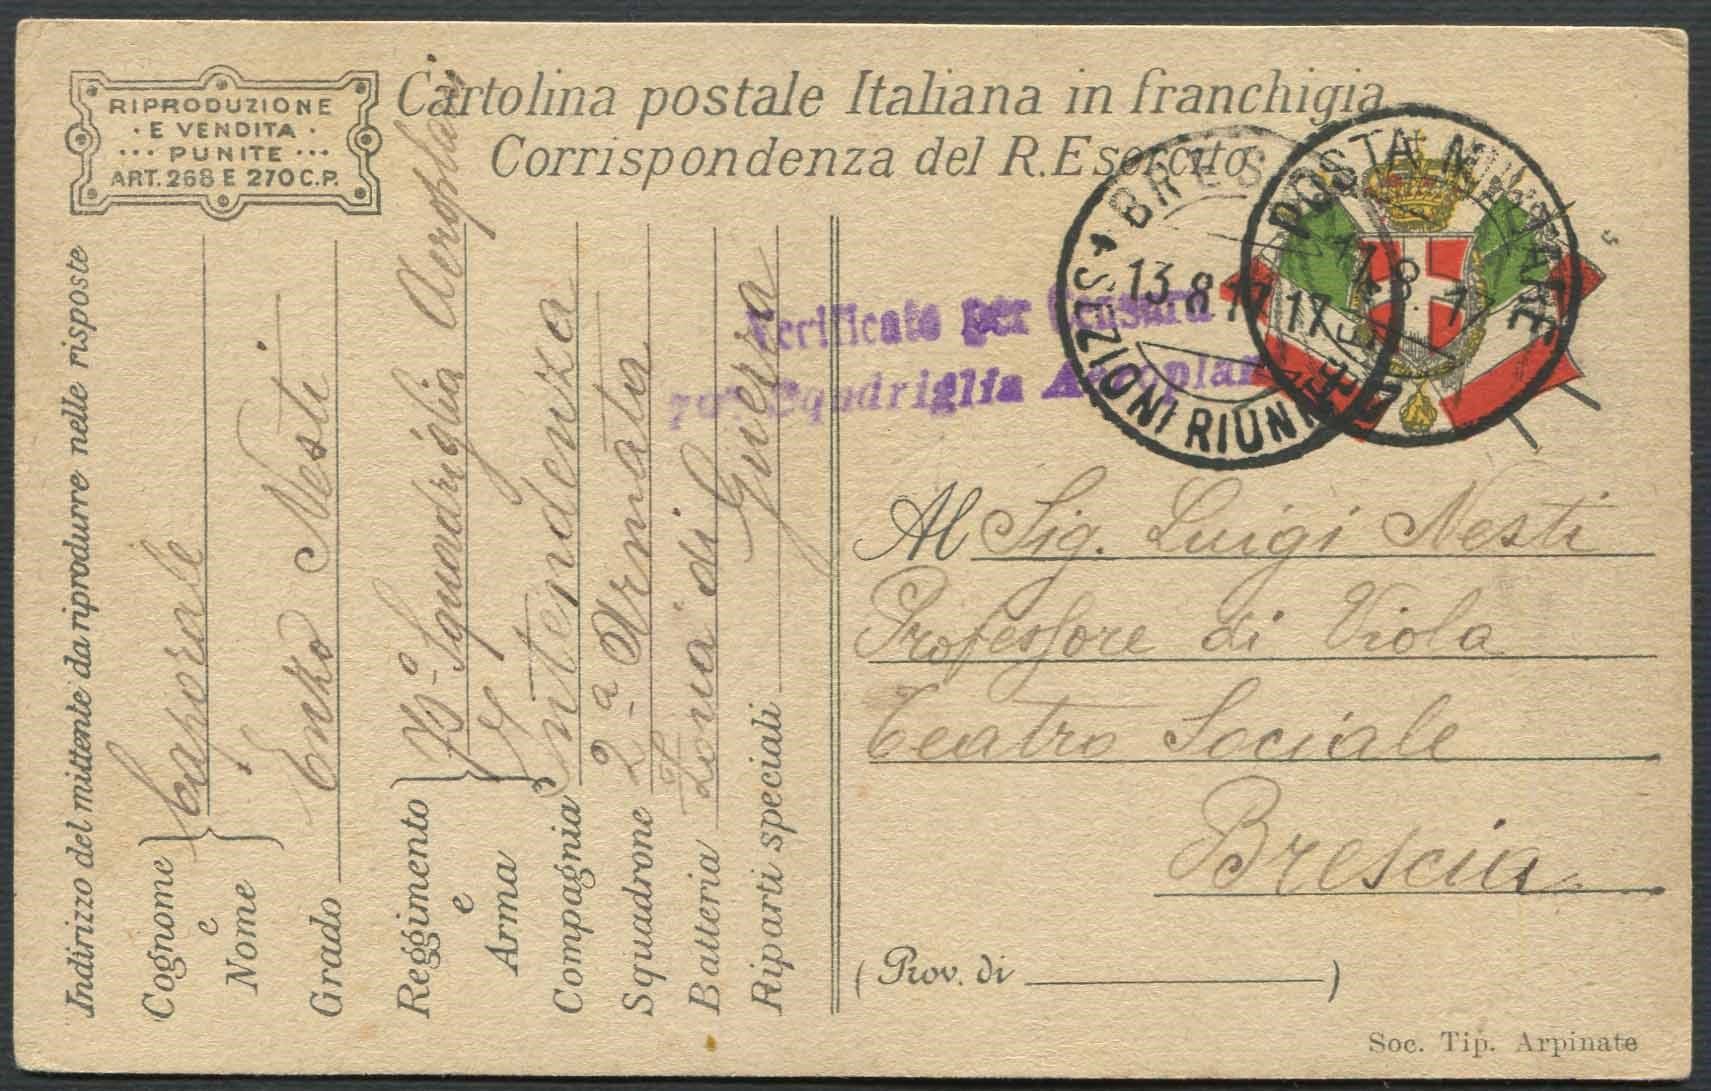 RIPRODUZIONE
· E VENDITA ·
··· PUNITE ···
ART. 268 E 270 C.P.
Cartolina postale Italiana in franchigia
Corrispondenza del R. Esercito
Indirizzo del mittente da riprodurre nelle risposte
Cognome
e
Nome
Caporale
Grado
Enzo Nesti
Reggimento
e
Arma
Squadriglia Aeroplani
Compagnia
Intendenza
Squadrone
2ª Armata
Batteria
Zona di
Riparti speciali
Guerra
Verificato per Censura
Squadriglia Aeroplani
BRES
13.8.17 17
SEZIONI RIUNITE
POSTA MILITARE
17.8.17
Al Sig. Luigi Nesti
Professore di Viola
Teatro Sociale
Brescia
( Prov. di )
Soc. Tip. Arpinate